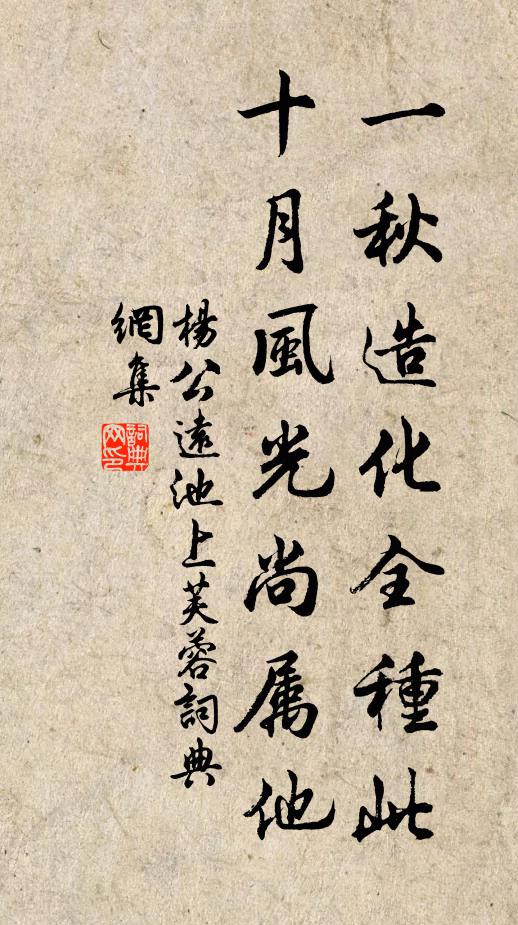 一秋造化全種此
十月風光尚属他
楊公遠池上芙蓉詞典
網集
詞典
网印